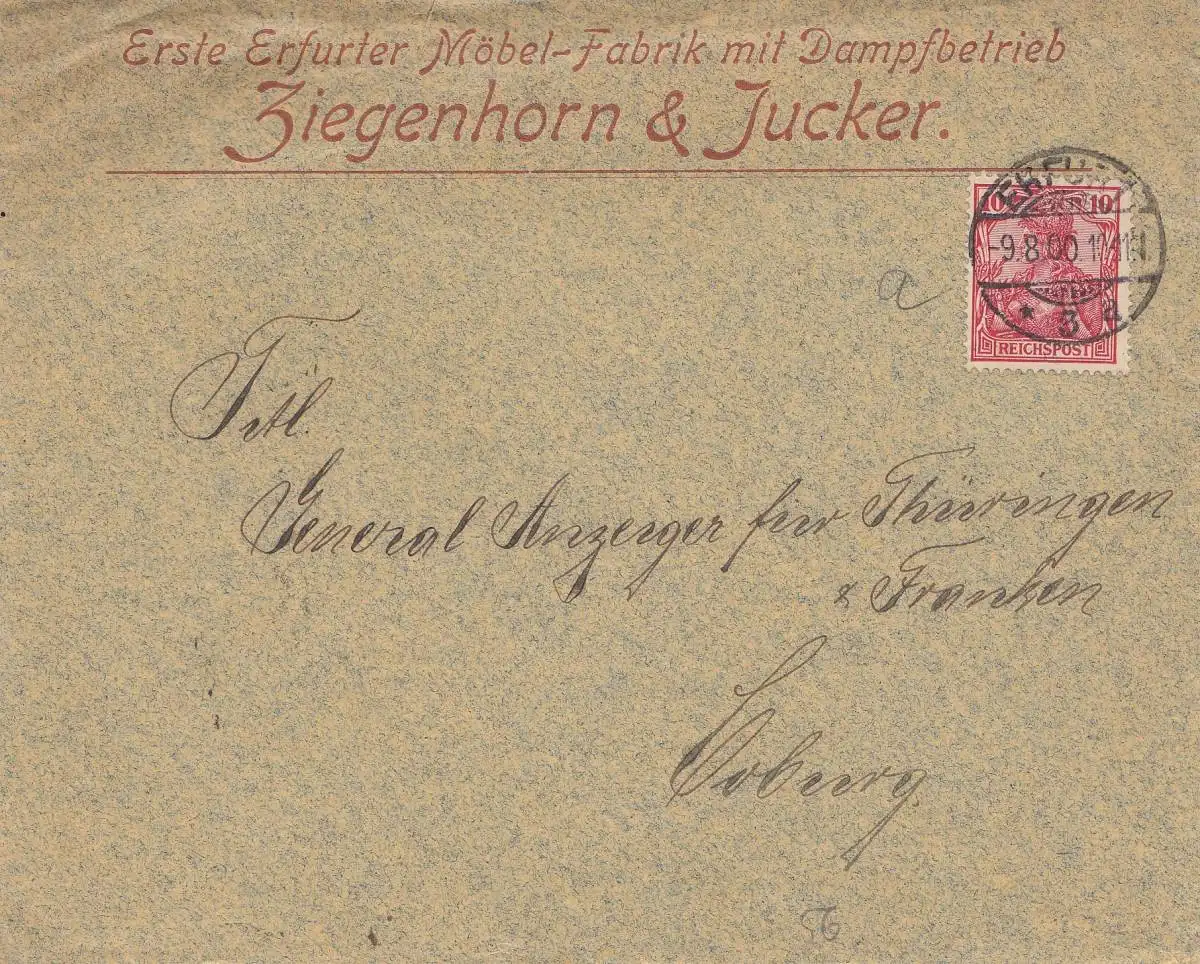 Erste Erfurter Möbel-Fabrik mit Dampfbetrieb
Ziegenhorn & Jucker.
ERFURT
10 10
-9.8.00.
* 3 a
REICHSPOST
a
Titl.
General Anzeiger für Thüringen
& Franken
Coburg.
56